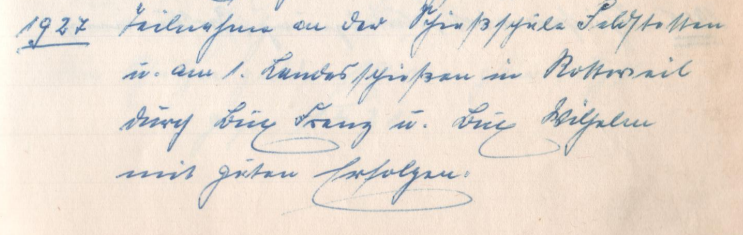 1927 Teilnahme an der Schießschule Feldstetten
u. am 1. Landesschießen in Rottweil
durch Bux Franz u. Bux Wilhelm
mit guten Erfolgen.